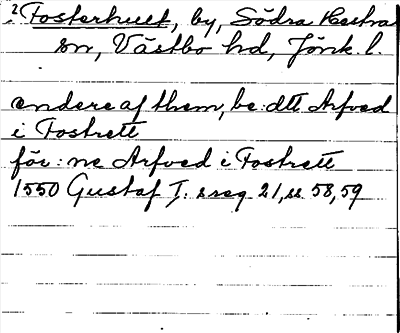 ? Fosterhult, by, Södra Hestra
sn, Västbo hd, Jönk. l.
endere af them, be:dtt Arfved
i Fostrett
för:ne Arfved i Fostrett
1550 Gustaf I:s reg 21, ss 58, 59